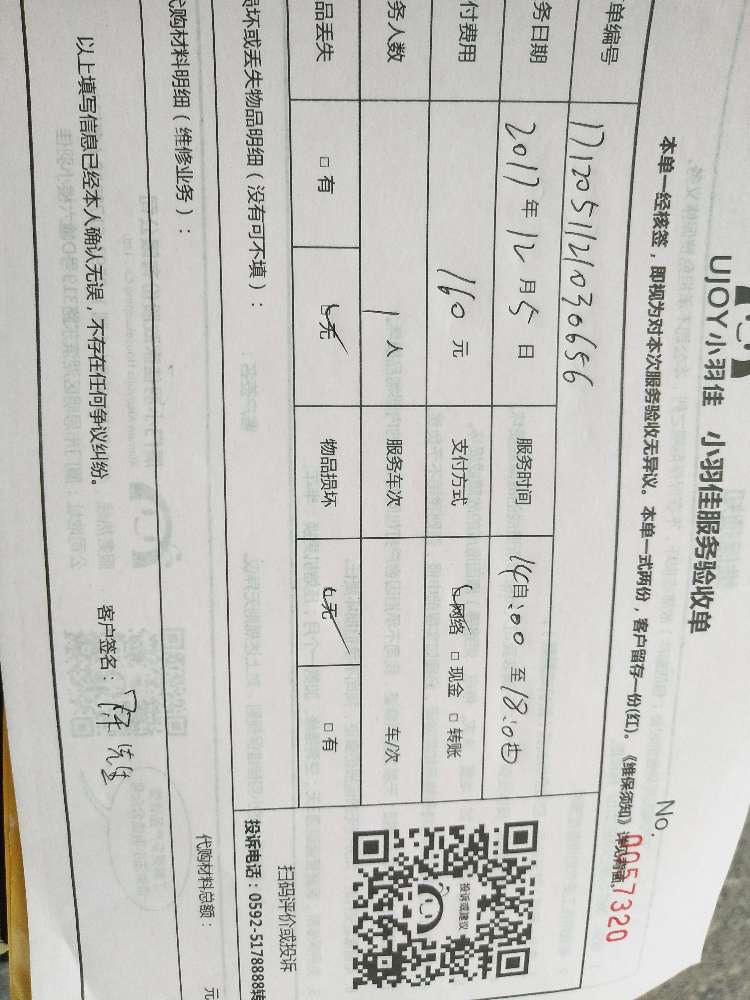 UJOY小羽佳 小羽佳服务验收单
No. 0057320
本单一经核签，即视为对本次服务验收无异议。本单一式两份，客户留存一份(红)。《维保须知》详见背面。
单编号 1712051121030656
务日期 2017年12月5日 服务时间 自14:00至18:00
付费用 160元 支付方式 □网络 □现金 □转账
务人数 1人 服务车次 车/次
品丢失 □有 □无 物品损坏 □无 □有
投诉或建议
扫码评价或投诉
投诉电话：0592-5178888转
损坏或丢失物品明细（没有可不填）：
代购材料明细（维修业务）：
代购材料总额： 元
以上填写信息已经本人确认无误，不存在任何争议纠纷。
客户签名：陈先生